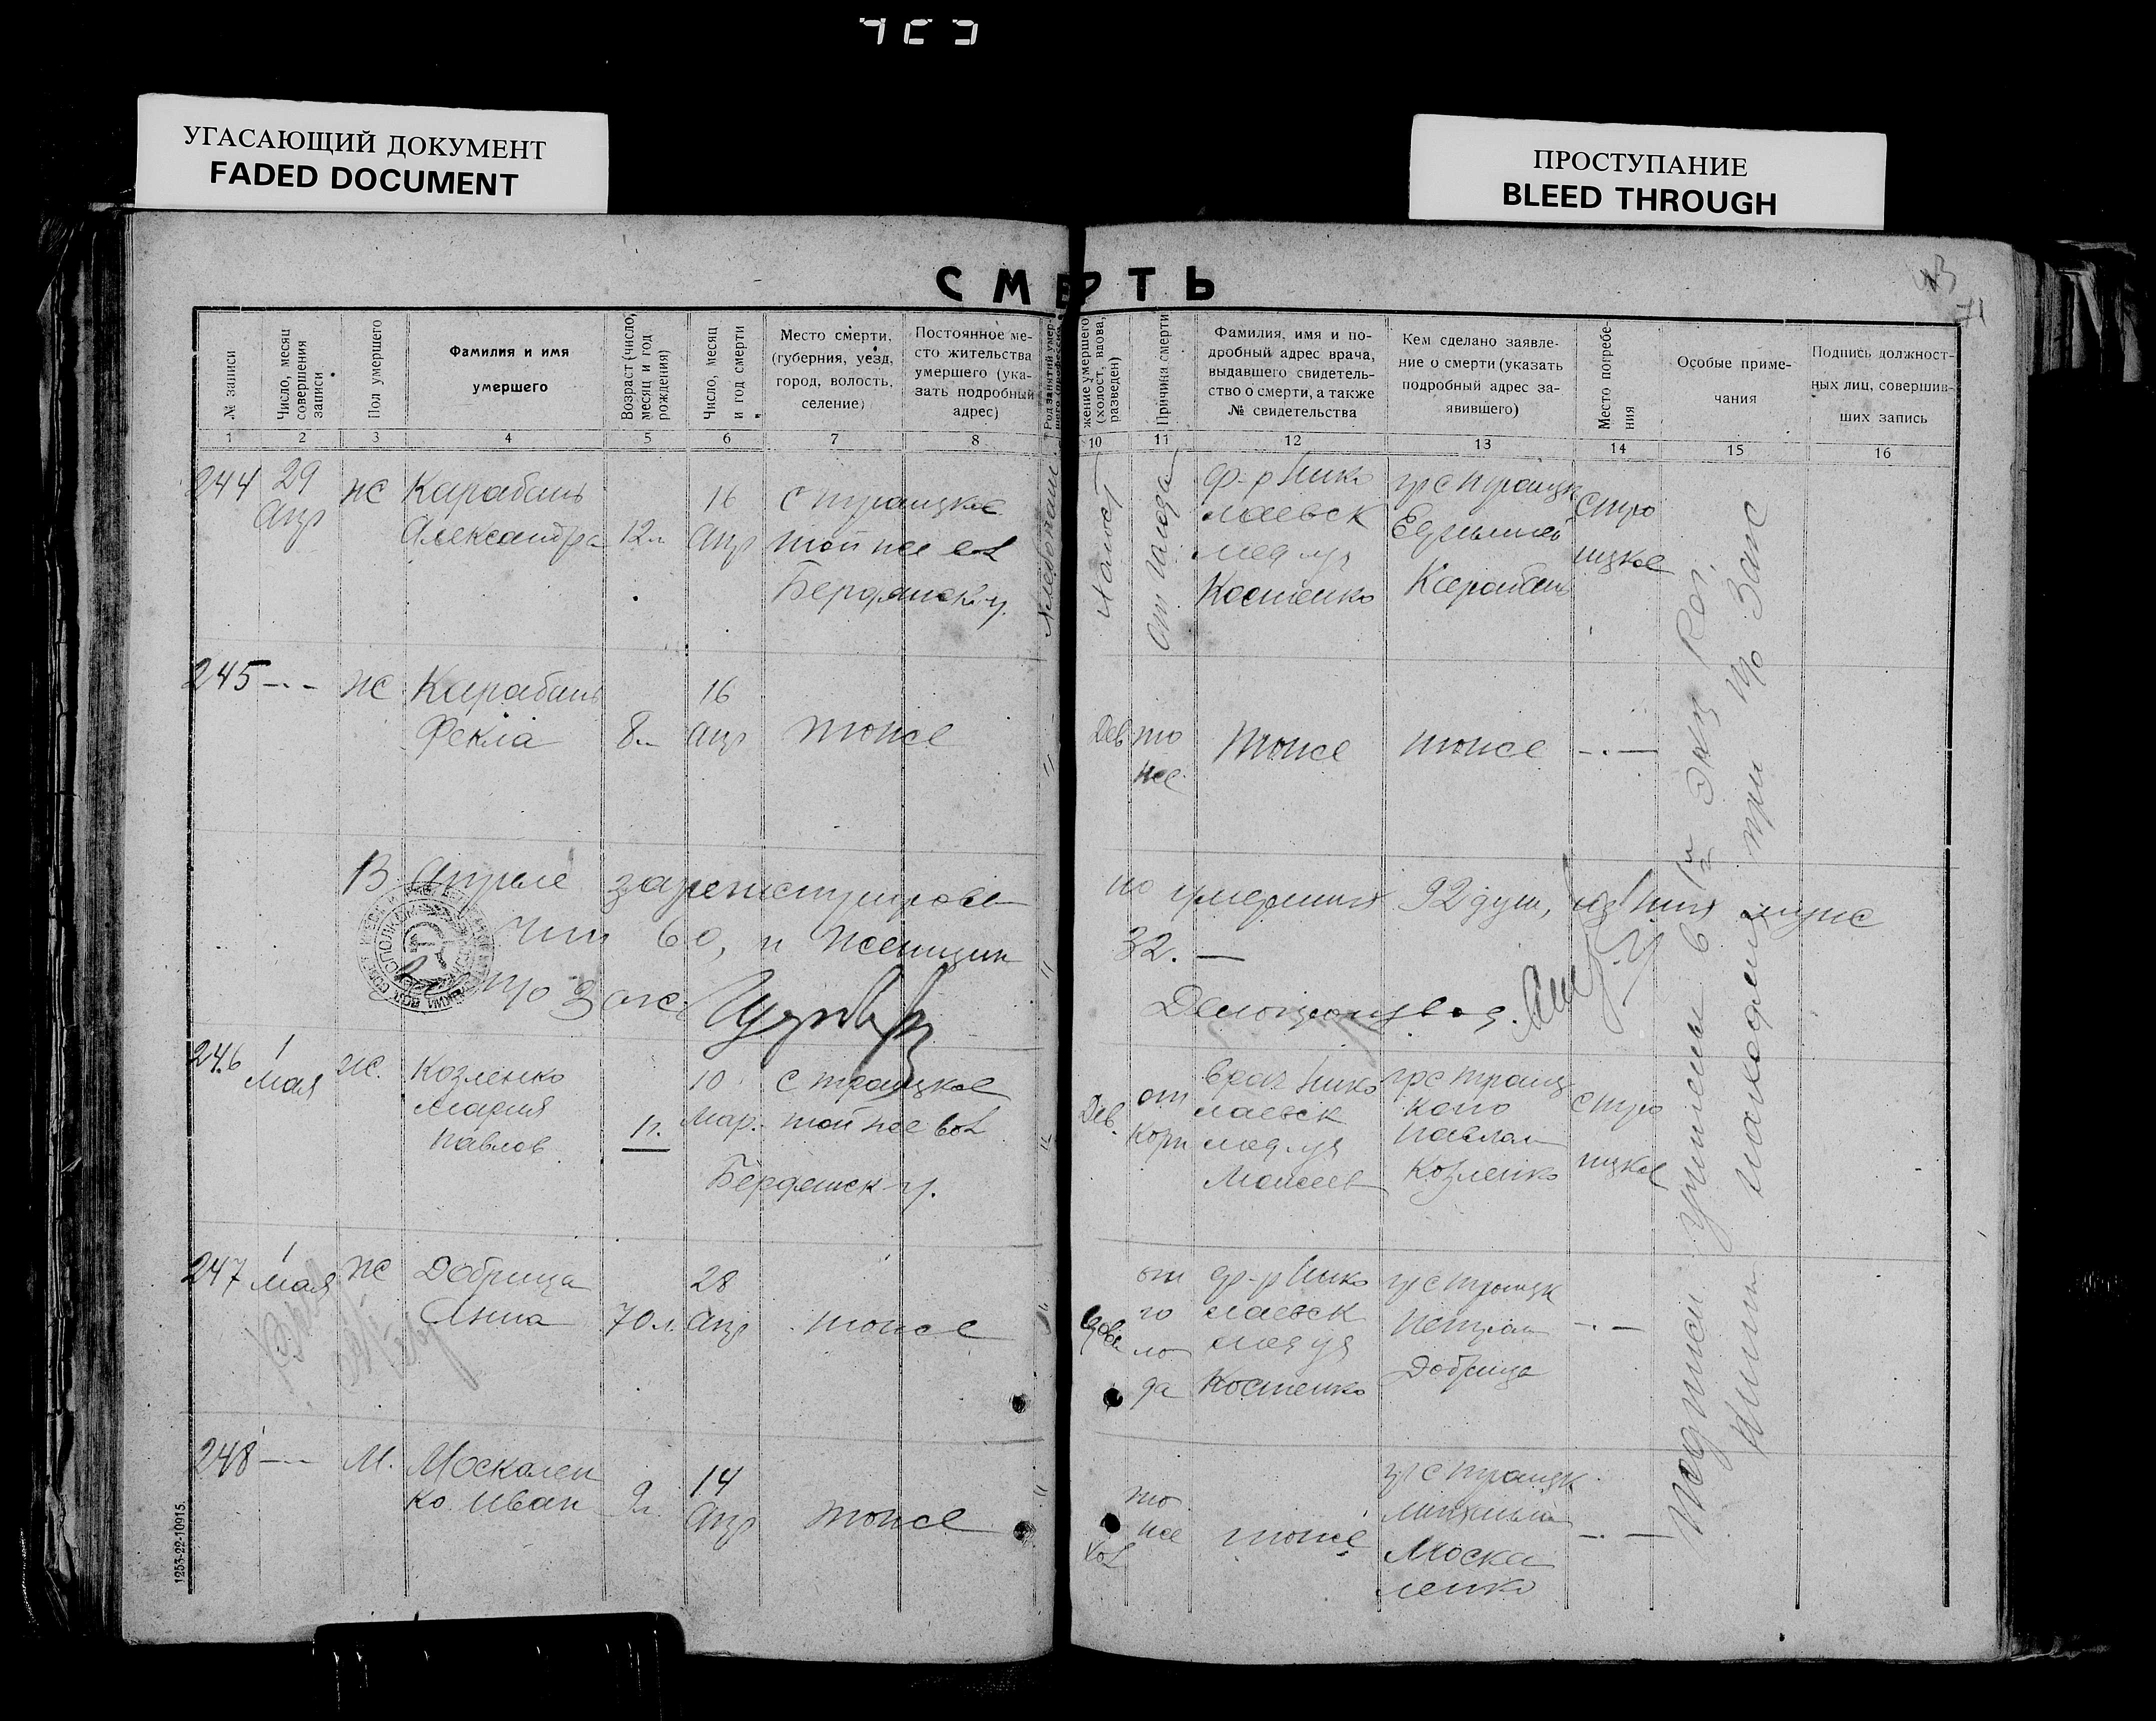 УГАСАЮЩИЙ ДОКУМЕНТ
FADED DOCUMENT
ПРОСТУПАНИЕ
BLEED THROUGH
СМЕРТЬ
71
№ записи
Число, месяц совершения записи
Пол умершего
Фамилия и имя умершего
Возраст (число, месяц и год рождения)
Число, месяц и год смерти
Место смерти, (губерния, уезд, город, волость, селение)
Постоянное место жительства умершего (указать подробный адрес)
Род занятий умер-
жение умершего (холост, вдова, разведен)
Причина смерти
Фамилия, имя и подробный адрес врача, выдавшего свидетельство о смерти, а также № свидетельства
Кем сделано заявление о смерти (указать подробный адрес заявившего)
Место погребения
Особые примечания
Подпись должностных лиц, совершивших запись
1 2 3 4 5 6 7 8 10 11 12 13 14 15 16
244 29 Апр ж Карабань Александра 12л 16 Апр с Троицкое той же вол Бердянск у.
от голода ф-р Нико
лаевск
мед уч
Костенко
гр с Троицк
Карабань
С Тро
ицкое
245 -·- ж Карабань Фекла 8л 16 Апр тоже
Дев то
же
тоже тоже -·-
В Апреле зарегистрирова
но умерших 92 душ, из них муж
чин 60, и женщин
32. —
Делопроизвод.
246 1 мая ж. Козленко Мария Павлов 1г. 10 Мар. с Троицкое той же вол
Бердянск у.
Дев. от
кори
врач Нико
лаевск
мед уч
Моисеев
гр с Троиц
кого
Павлом
Козленко
С Тро
ицкое
247 1 мая ж Добрица Анна 70л. 28 Апр тоже
вдова от
го
ло
да
ф-р Нико
лаевск
мед уч
Костенко
гр с Троицк
Петром
Добрица
-·-
248 -·- М. Москален
ко Иван 9л 14 Апр тоже
Хол
то
же
тоже
гр с Троицк
Михаила
Моска
ленко
-·-
Подписи учинены в 1м Экз Кот.
находящимся при ЗАГС
1253-22-10915.